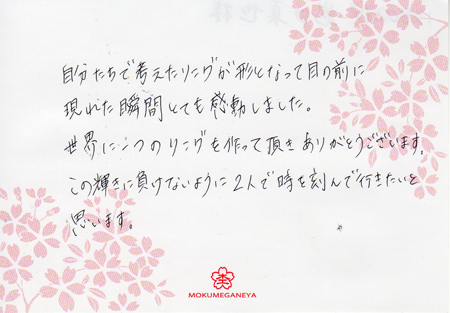 自分たちで考えたリングが形となって目の前に
現れた瞬間とても感動しました。
世界に二つのリングを作って頂きありがとうございます。
この輝きに負けないように2人で時を刻んで行きたいと
思います。
MOKUMEGANEYA